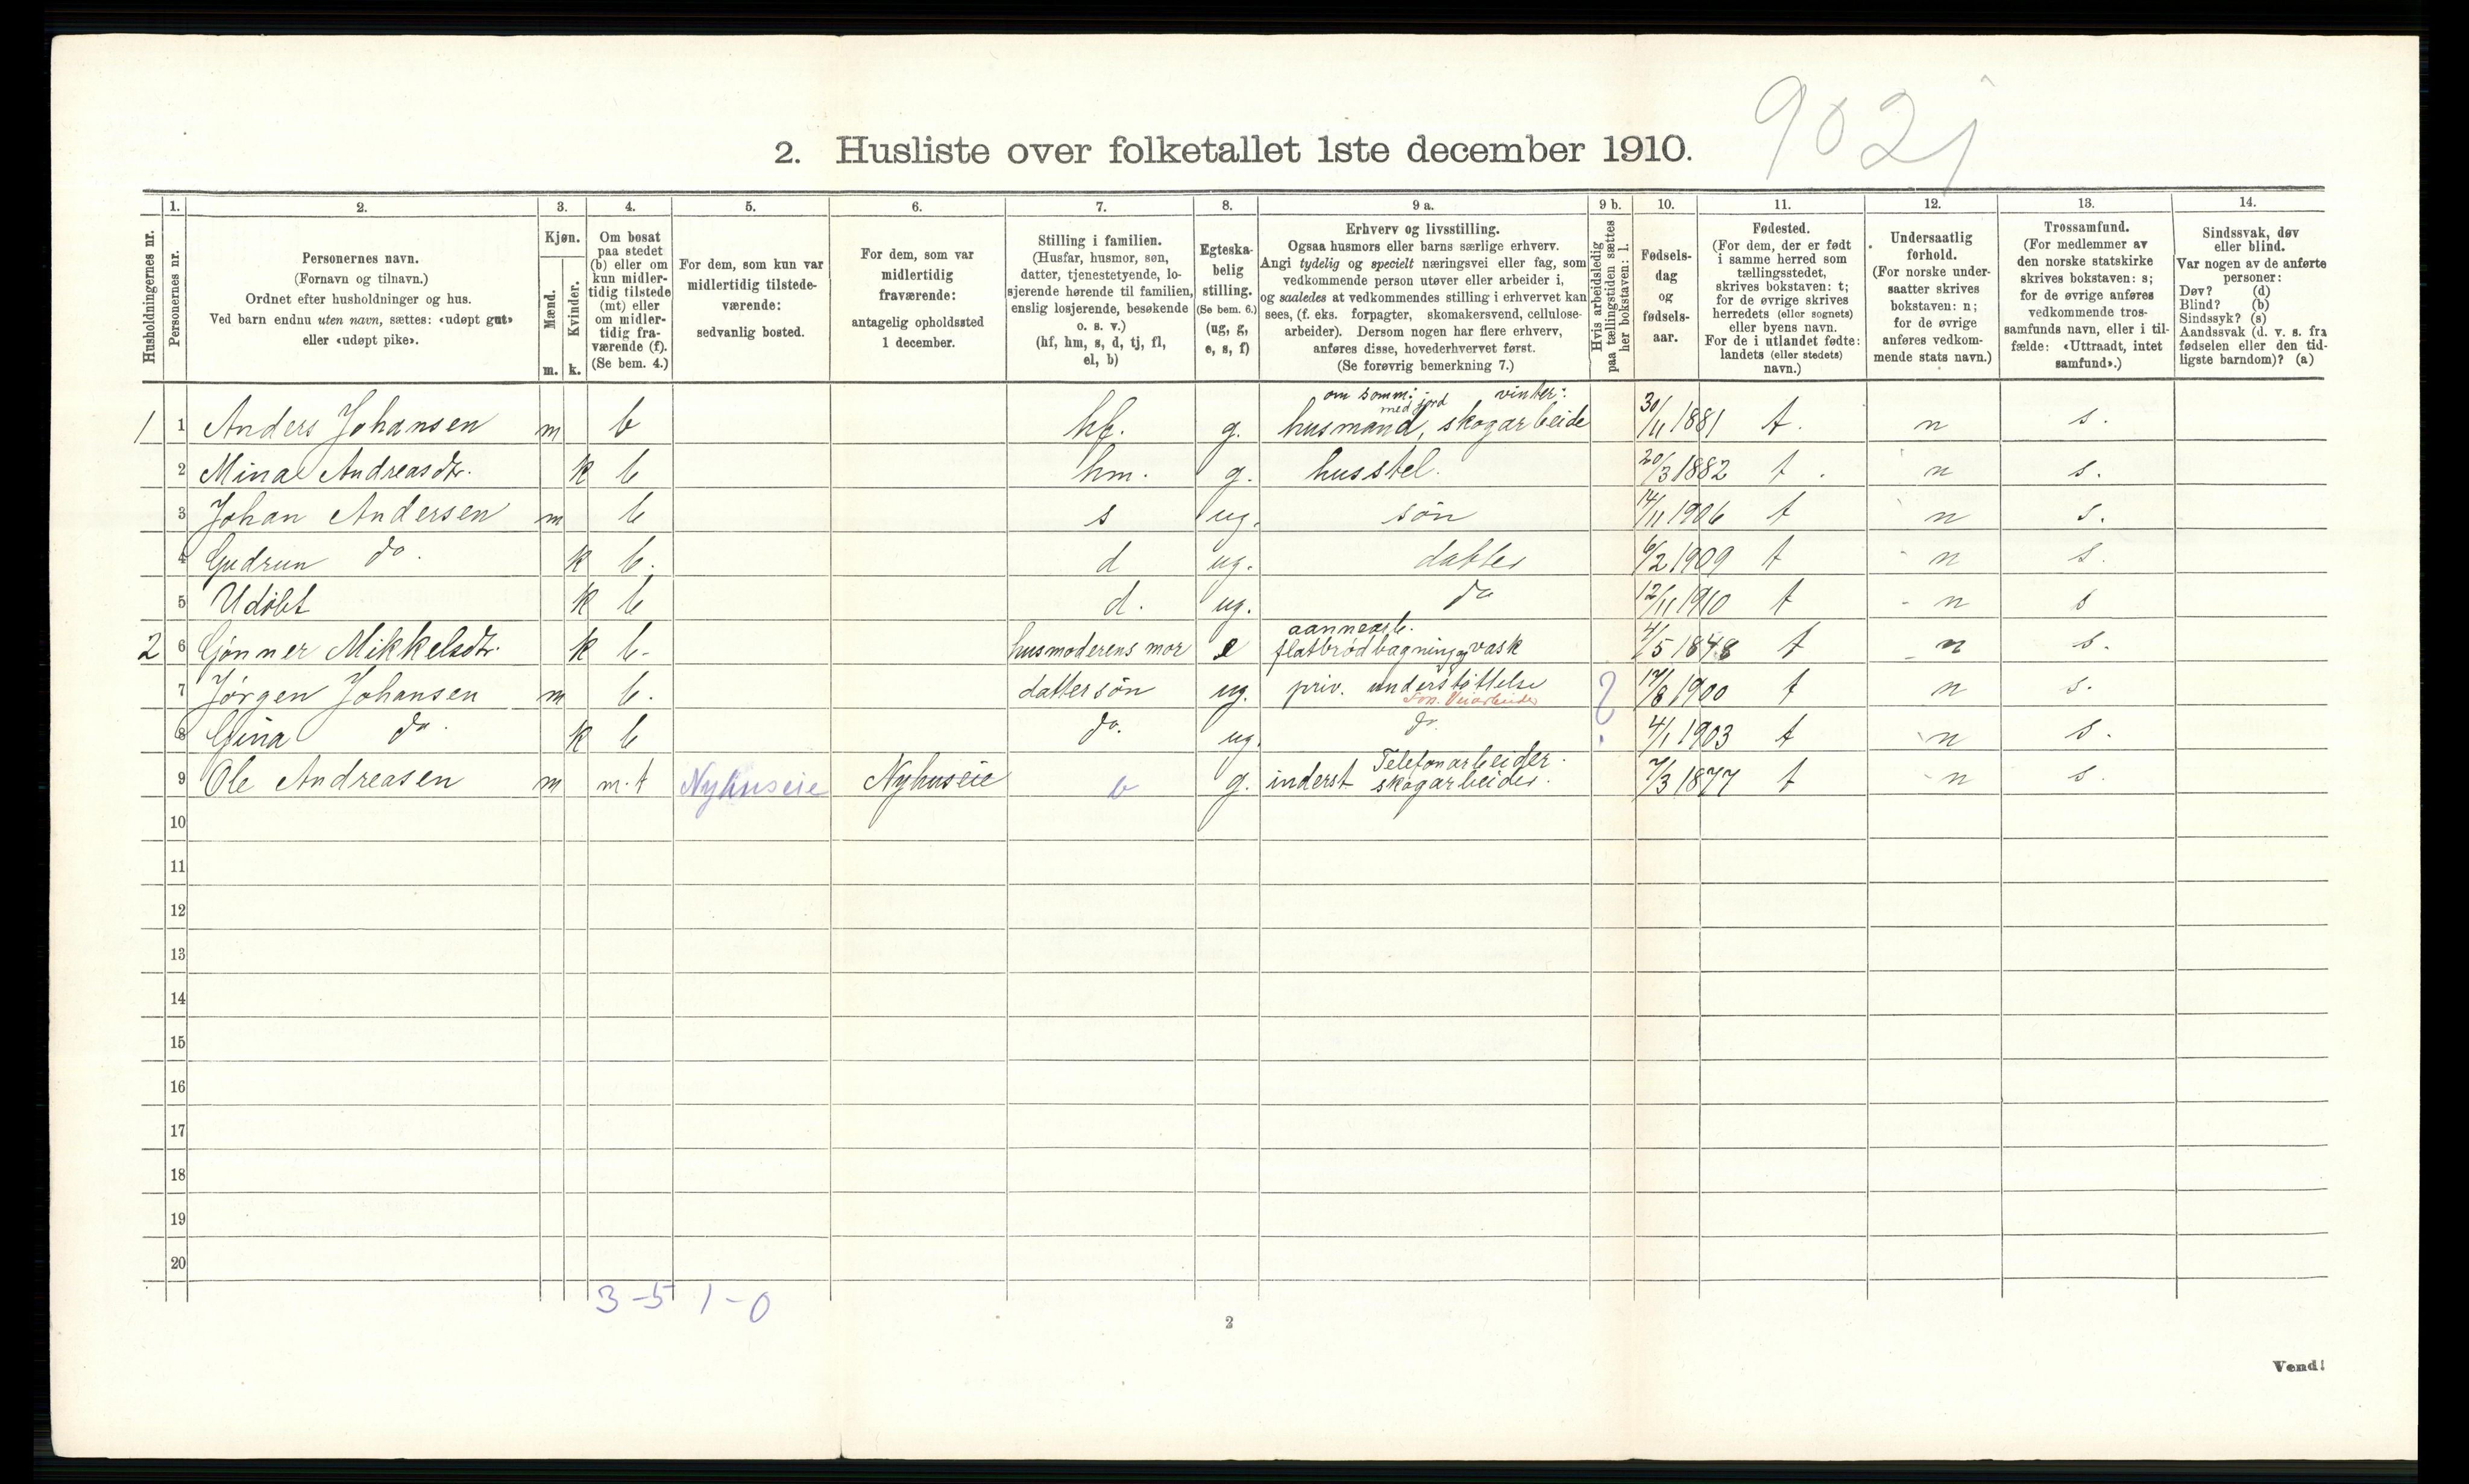 902j
2. Husliste over folketallet 1ste december 1910.
1. 2. 3. 4. 5. 6. 7. 8. 9 a. 9 b. 10. 11. 12. 13. 14.
Husholdningernes nr.
Personernes nr.
Personernes navn.
(Fornavn og tilnavn.)
Ordnet efter husholdninger og hus.
Ved barn endnu uten navn, sættes: «udøpt gut»
eller «udøpt pike».
Kjøn.
Mænd.
Kvinder.
m. k.
Om bosat
paa stedet
(b) eller om
kun midler-
tidig tilstede
(mt) eller
om midler-
tidig fra-
værende (f).
(Se bem. 4.)
For dem, som kun var
midlertidig tilstede-
værende:
sedvanlig bosted.
For dem, som var
midlertidig
fraværende:
antagelig opholdssted
1 december.
Stilling i familien.
(Husfar, husmor, søn,
datter, tjenestetyende, lo-
sjerende hørende til familien,
enslig losjerende, besøkende
o. s. v.)
(hf, hm, s, d, tj, fl,
el, b)
Egteska-
belig
stilling.
(Se bem. 6.)
(ug, g,
e, s, f)
Erhverv og livsstilling.
Ogsaa husmors eller barns særlige erhverv.
Angi tydelig og specielt næringsvei eller fag, som
vedkommende person utøver eller arbeider i,
og saaledes at vedkommendes stilling i erhvervet kan
sees, (f. eks. forpagter, skomakersvend, cellulose-
arbeider). Dersom nogen har flere erhverv,
anføres disse, hovederhvervet først.
(Se forøvrig bemerkning 7.)
Hvis arbeidsledig
paa tællingstiden sættes
her bokstaven: l.
Fødsels-
dag
og
fødsels-
aar.
Fødested.
(For dem, der er født
i samme herred som
tællingsstedet,
skrives bokstaven: t;
for de øvrige skrives
herredets (eller sognets)
eller byens navn.
For de i utlandet fødte:
landets (eller stedets)
navn.)
Undersaatlig
forhold.
(For norske under-
saatter skrives
bokstaven: n;
for de øvrige
anføres vedkom-
mende stats navn.)
Trossamfund.
(For medlemmer av
den norske statskirke
skrives bokstaven: s;
for de øvrige anføres
vedkommende tros-
samfunds navn, eller i til-
fælde: «Uttraadt, intet
samfund».)
Sindssvak, døv
eller blind.
Var nogen av de anførte
personer:
Døv? (d)
Blind? (b)
Sindssyk? (s)
Aandssvak (d. v. s. fra
fødselen eller den tid-
ligste barndom)? (a)
om somm: vinter:
med jord
1 1 Anders Johansen m b hf. g. husmand, skogarbeide 30/11 1881 t. n s.
2 Mina Andreasdtr. k b hm. g. husstel. 20/3 1882 t. n s.
3 Johan Andersen m b s ug. søn 14/11 1906 t n s.
4 Gudrun do. k b. d ug. datter 6/2 1909 t n s.
5 Udöbt k b d. ug. do 12/11 1910 t n s
2 6 Gønner Mikkelsdtr. k b. husmoderens mor e flatbrødbagning og vask 4/5 1848 t n s.
7 Jørgen Johansen m b. dattersön ug. priv. understöttelse 17/8 1900 t n s.
8 Gina do. k b do. ug. do. 4/1 1903 t n s.
Telefonarbeider.
9 Ole Andreasen m m.t Nyhuseie Nyhuseie b g. inderst skogarbeider. 7/3 1877 t n s.
10
11
12
13
14
15
16
17
18
19
20
3-5 1-0
2
Vend!